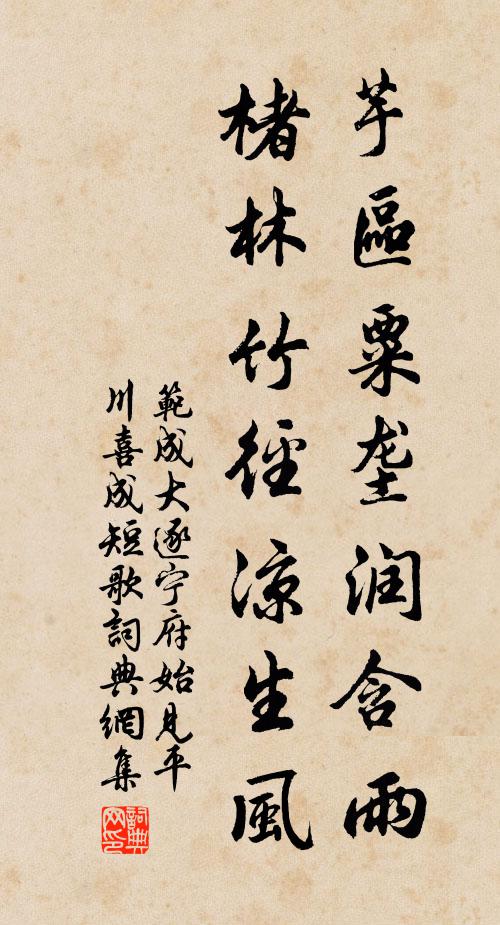 芋區粟垄润含雨
楮林竹徑涼生風
範成大逐宁府始見平
川喜成短歌詞典網集
詞典网印